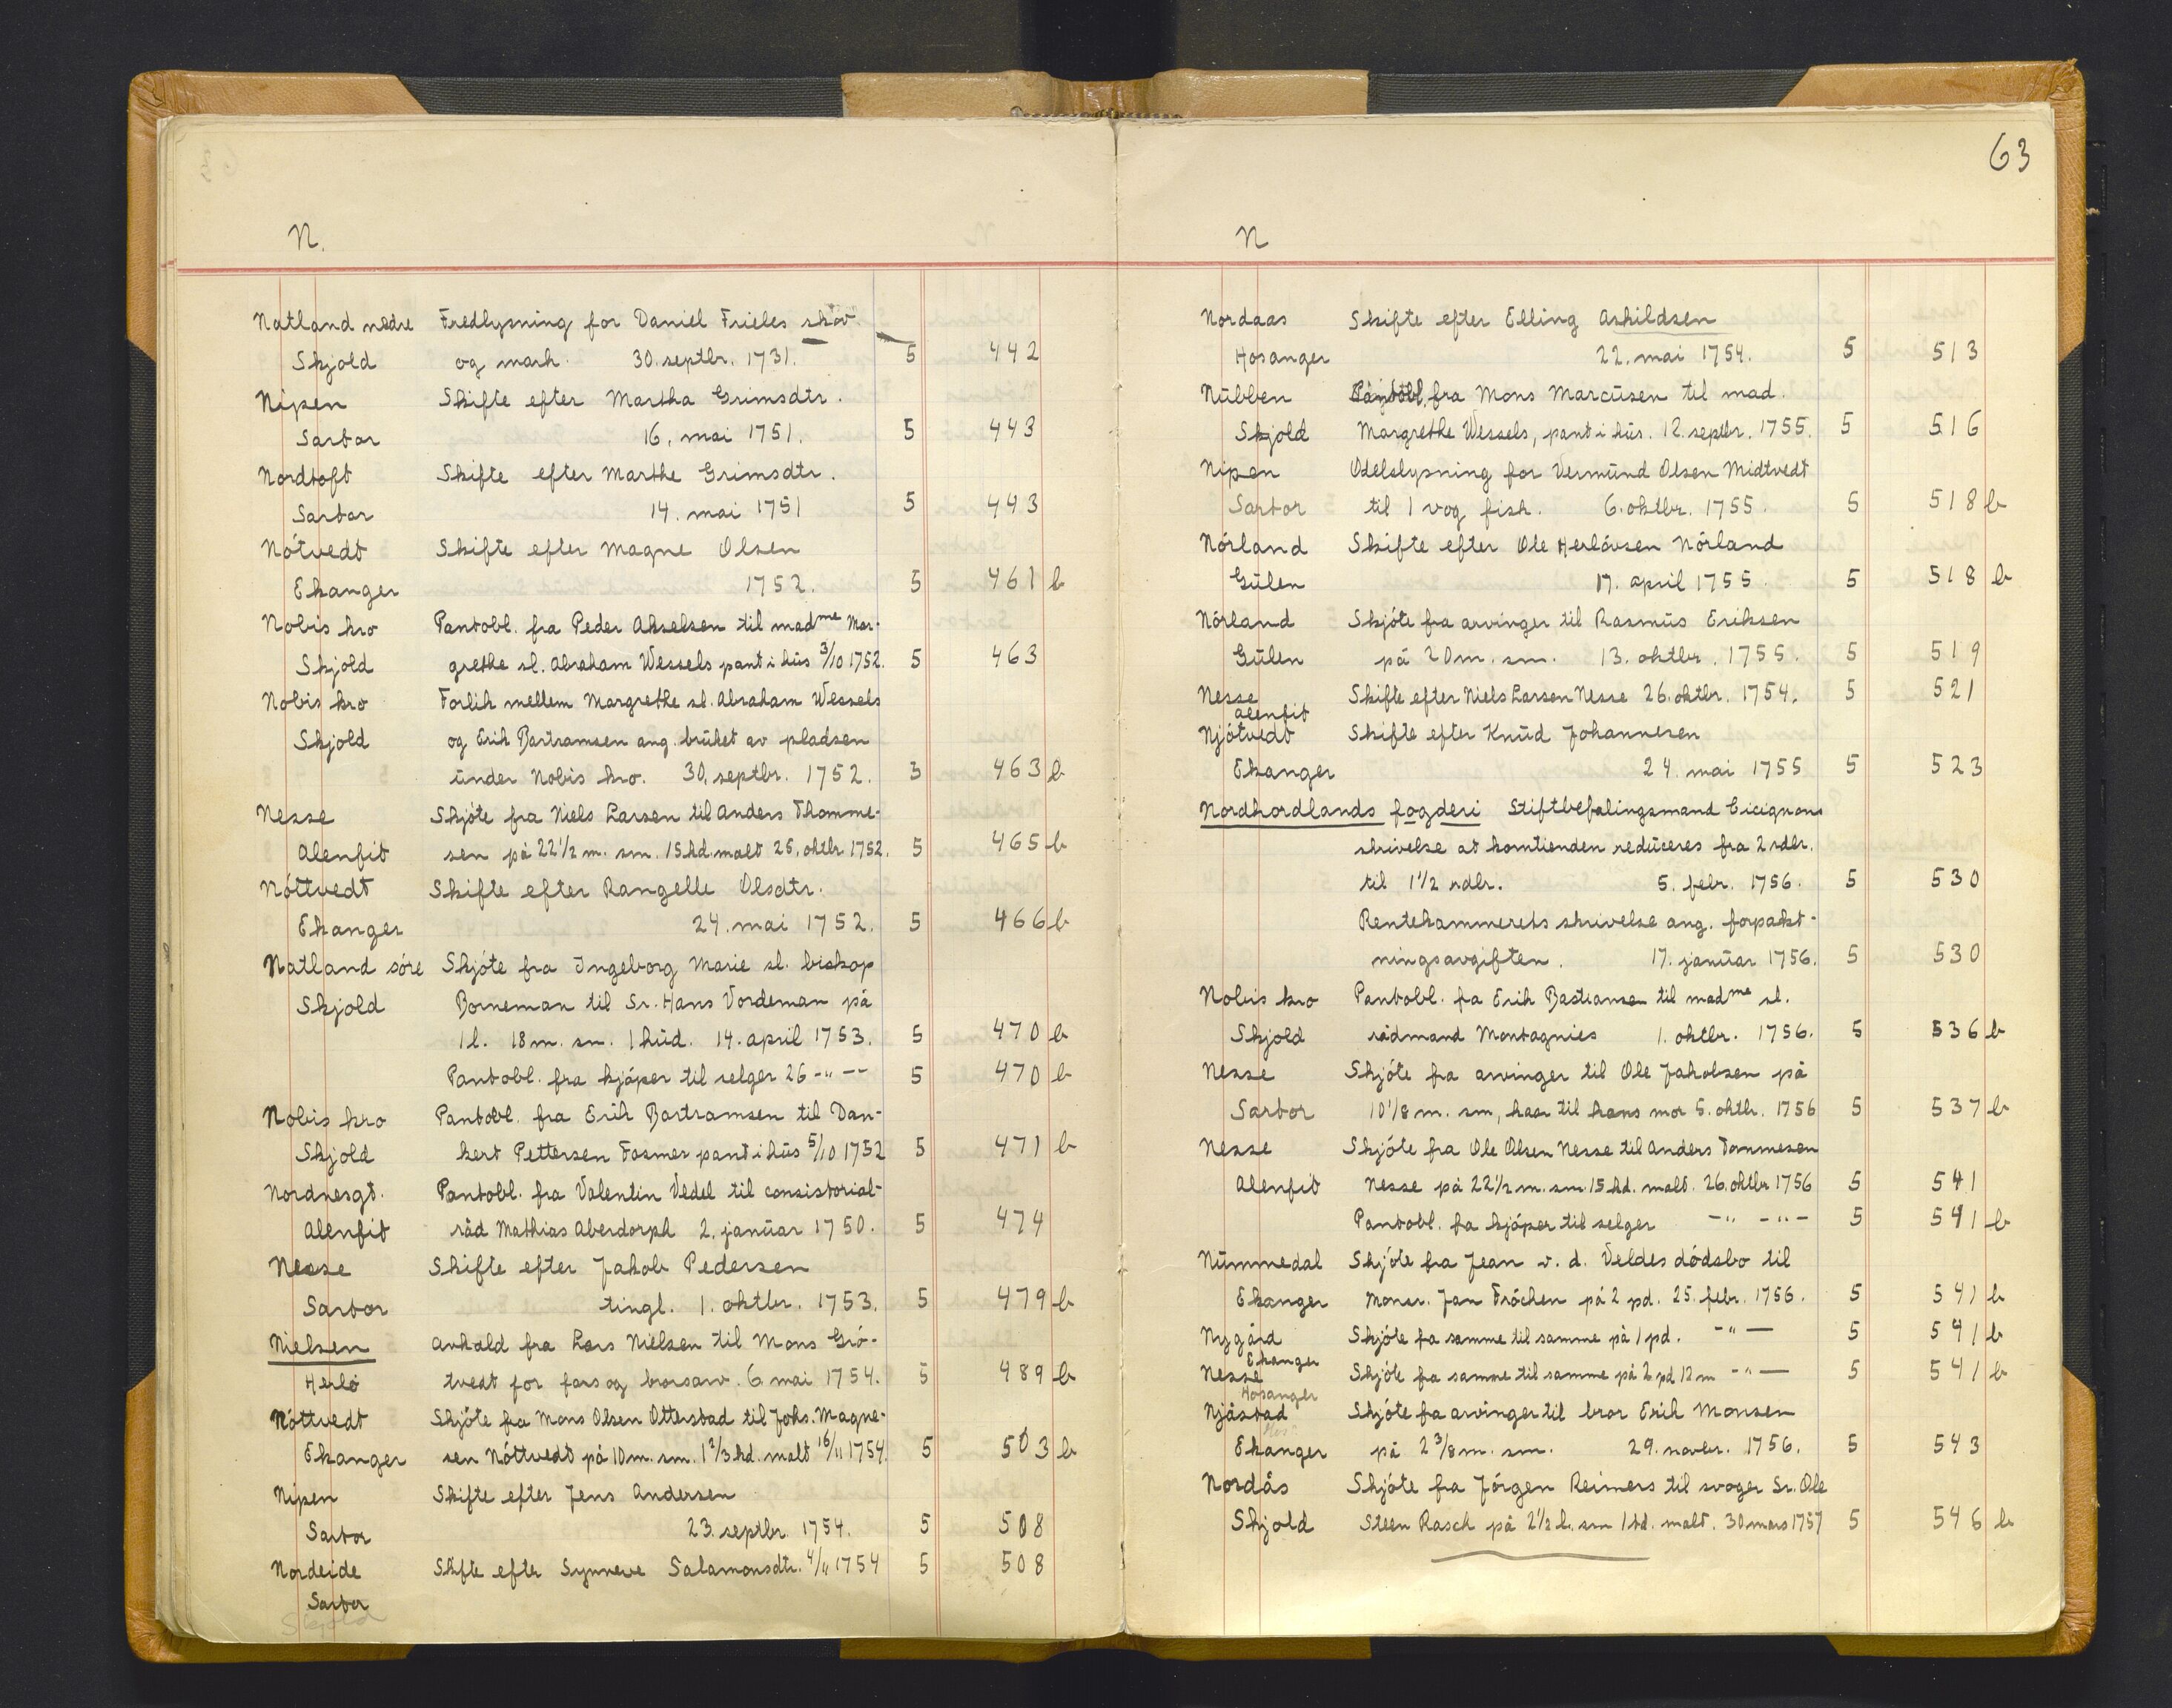 N.
Natland nedre Fredlysning for Daniel Frieles skov
Skjold og mark. 30. septbr. 1731. 5 442
Nipen Skifte efter Martha Grimsdtr.
Sartor 16. mai 1751. 5 443
Nordtoft Skifte efter Marthe Grimsdtr.
Sartor 14. mai 1751 5 443
Nótvedt Skifte efter Magne Olsen
Ekanger 1752. 5 461 b
Nobis kro Pantobl. fra Peder Akselsen til madme Mar-
Skjold grethe sl. Abraham Wessels pant i hüs 3/10 1752. 5 463
Nobis kro Forlik mellem Margrethe sl. Abraham Wessels
Skjold og Erik Bartramsen ang. brüket av pladsen
ünder Nobis kro. 30. septbr. 1752. 3 463 b
Nesse Skjóte fra Niels Larsen til Anders Thomme-
Alenfit sen på 22 1/2 m. sm. 15 kd. malt 26. oktbr 1752. 5 465 b
Nóttvedt Skifte efter Rangelle Olsdtr.
Ekanger 24. mai 1752. 5 466 b
Natland sóre Skjóte fra Ingeborg Marie sl. biskop
Skjold Borneman til Sr. Hans Vordeman på
1 l. 18 m. sm. 1 hüd. 14. april 1753. 5 470 b
Pantobl. fra kjóper til selger 26 -"- - 5 470 b
Nobis kro Pantobl. fra Erik Bartramsen til Dan-
Skjold kert Pettersen Fasmer pant i hüs 5/10 1752 5 471 b
Nordnesgt. Pantobl. fra Valentin Vedel til consistorial-
Alenfit råd Mathias Aberdorph 2. janüar 1750. 5 474
Nesse Skifte efter Jakob Pedersen
Sartor tingl. 1. oktbr. 1753. 5 479 b
Nielsen Avkald fra Lars Nielsen til Mons Gró-
Herlo tvedt for fars og brorsarv. 6. mai 1754. 5 489 b
Nóttvedt Skjóte fra Mons Olsen Otterstad til Johs. Magne-
Ekanger sen Nóttvedt på 10 m. sm. 1 2/3 kd. malt 16/11 1754. 5 503 b
Nipen Skifte efter Jens Andersen
Sartor 23. septbr 1754. 5 508
Nordeide Skifte efter Synneve Salamonsdtr. 4/11 1754 5 508
Sartor
Skjold
63
N
Nordaas Skifte efter Elling Askildsen
Hosanger 22. mai 1754. 5 513
Nübben Pantobl. fra Mons Marcüsen til mad.
Skjold Margrethe Wessels, pant i hüs. 12. septbr. 1755. 5 516
Nipen Odelslysning for Vermünd Olsen Midtvedt
Sartor til 1 vog fisk. 6. oktbr. 1755. 5 518 b
Nórland Skifte efter Ole Herlóvsen Nórland
Gülen 17. april 1755. 5 518 b
Nórland Skjóte fra arvinger til Rasmüs Eriksen
Gülen på 20 m. sm. 13. oktbr. 1755. 5 519
Nesse Skifte efter Niels Larsen Nesse 26. oktbr. 1754. 5 521
Alenfit
Njótvedt Skifte efter Knüd Johannesen
Ekanger 24. mai 1755 5 523
Nordhordlands fogderi Stiftbefalingsmand Cicignons
skrivelse at korntienden redüceres fra 2 rdlr.
til 1 1/2 rdlr. 5. febr. 1756. 5 530
Rentekammerets skrivelse ang. forpakt-
ningsavgiften. 17. janüar 1756. 5 530
Nobis kro Pantobl. fra Erik Bastiansen til madme sl.
Skjold rådmand Montagnies 1. oktbr. 1756. 5 536 b
Nesse Skjóte fra arvinger til Ole Jakobsen på
Sartor 10 1/8 m. sm, kaar til hans mor 5. oktb. 1756 5 537 b
Nesse Skjóte fra Ole Olsen Nesse til Anders Tommesen
Alenfit Nesse på 22 1/2 m. sm. 15 kd. malt. 26. oktbr 1756 5 541
Pantobl. fra kjóper til selger -"- -"- 5 541 b
Nümmedal Skjóte fra Jean v. d. Veldes dódsbo til
Ekanger Monsr. Jan Fróchen på 2 pd. 25. febr. 1756. 5 541 b
Nygård Skjóte fra samme til samme på 1 pd. -"- 5 541 b
Ekanger
Nesse Skjóte fra samme til samme på 2 pd 12 m -"- 5 541 b
Hosanger
Njåstad Skjóte fra arvinger til bror Erik Monsen
Ekanger på 2 3/8 m. sm. 29. novbr. 1756. 5 543
Nordås Skjóte fra Jórgen Reimers til svoger Sr. Ole
Skjold Steen Rasch på 2 1/2 l. sm 1 td. malt. 30 mars 1757 5 546 b